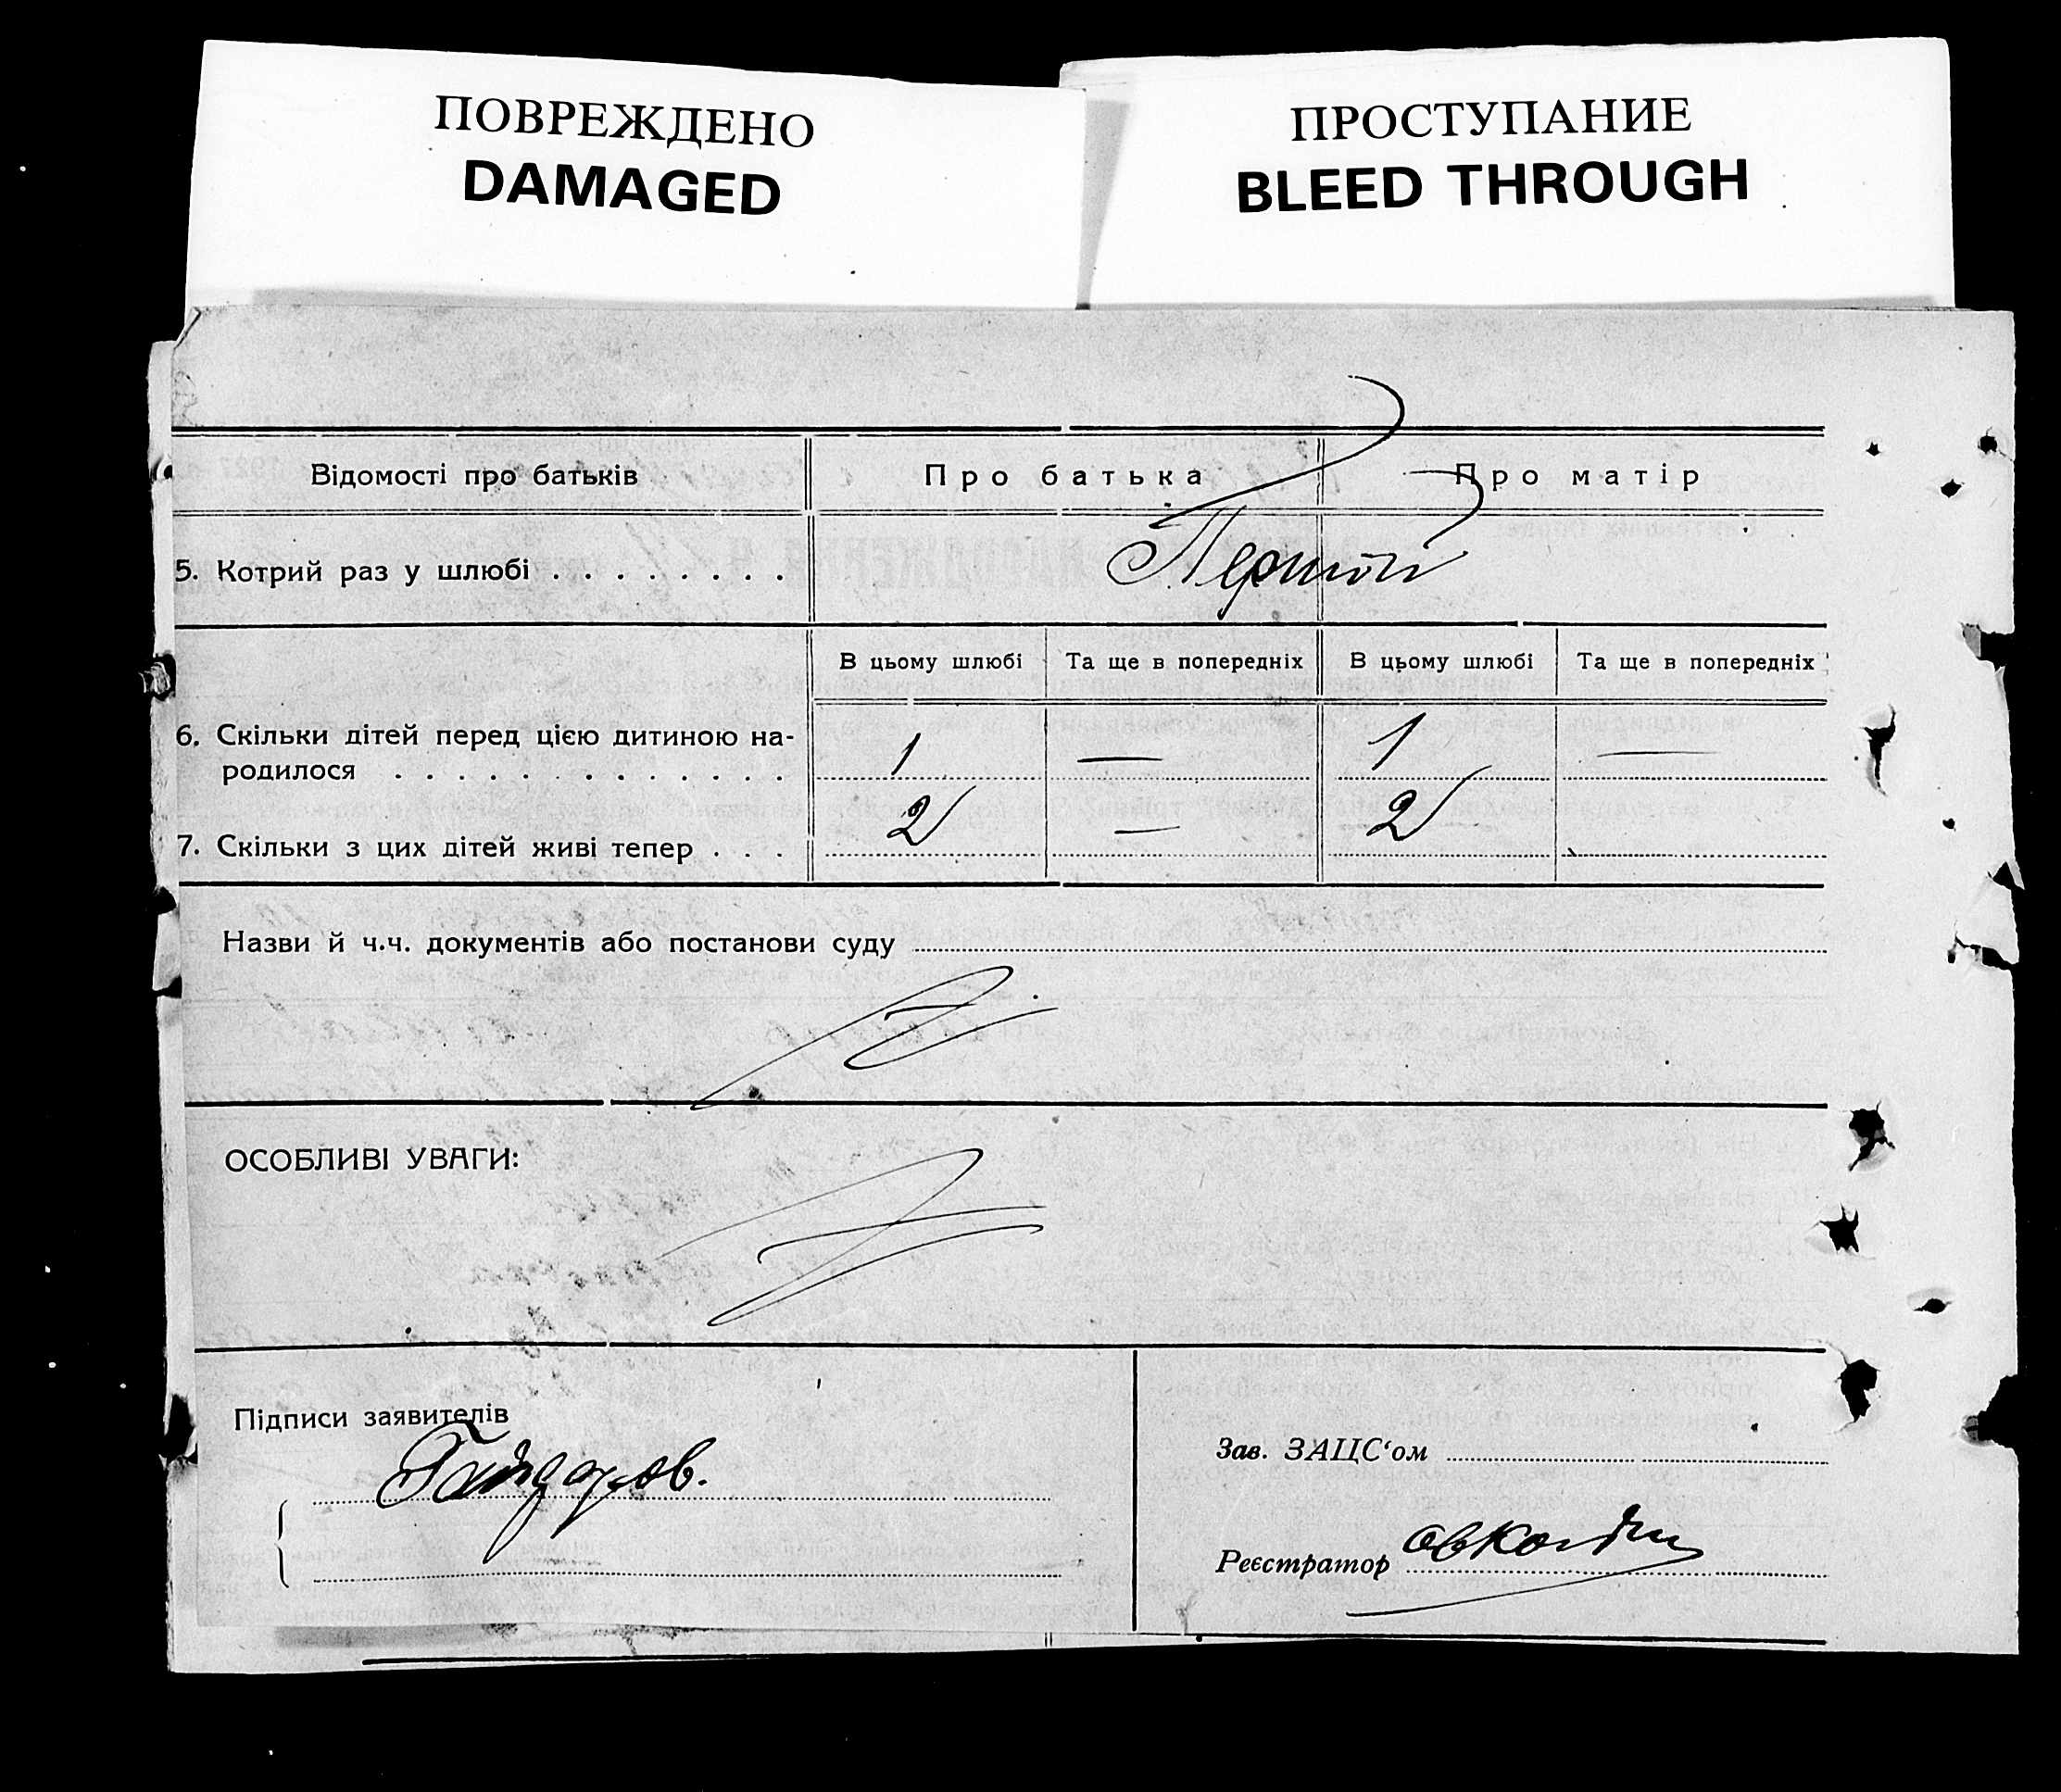 ПОВРЕЖДЕНО
DAMAGED
ПРОСТУПАНИЕ
BLEED THROUGH
Відомості про батьків Про батька Про матір
5. Котрий раз у шлюбі . . . . . . . .
В цьому шлюбі Та ще в попередніх В цьому шлюбі Та ще в попередніх
6. Скільки дітей перед цією дитиною на-
родилося . . . . . . . . . . . . . 1 — 1 —
7. Скільки з цих дітей живі тепер . . . 2 — 2
Назви й ч.ч. документів або постанови суду
ОСОБЛИВІ УВАГИ:
Підписи заявителів
Зав. ЗАЦС‘ом
Реєстратор